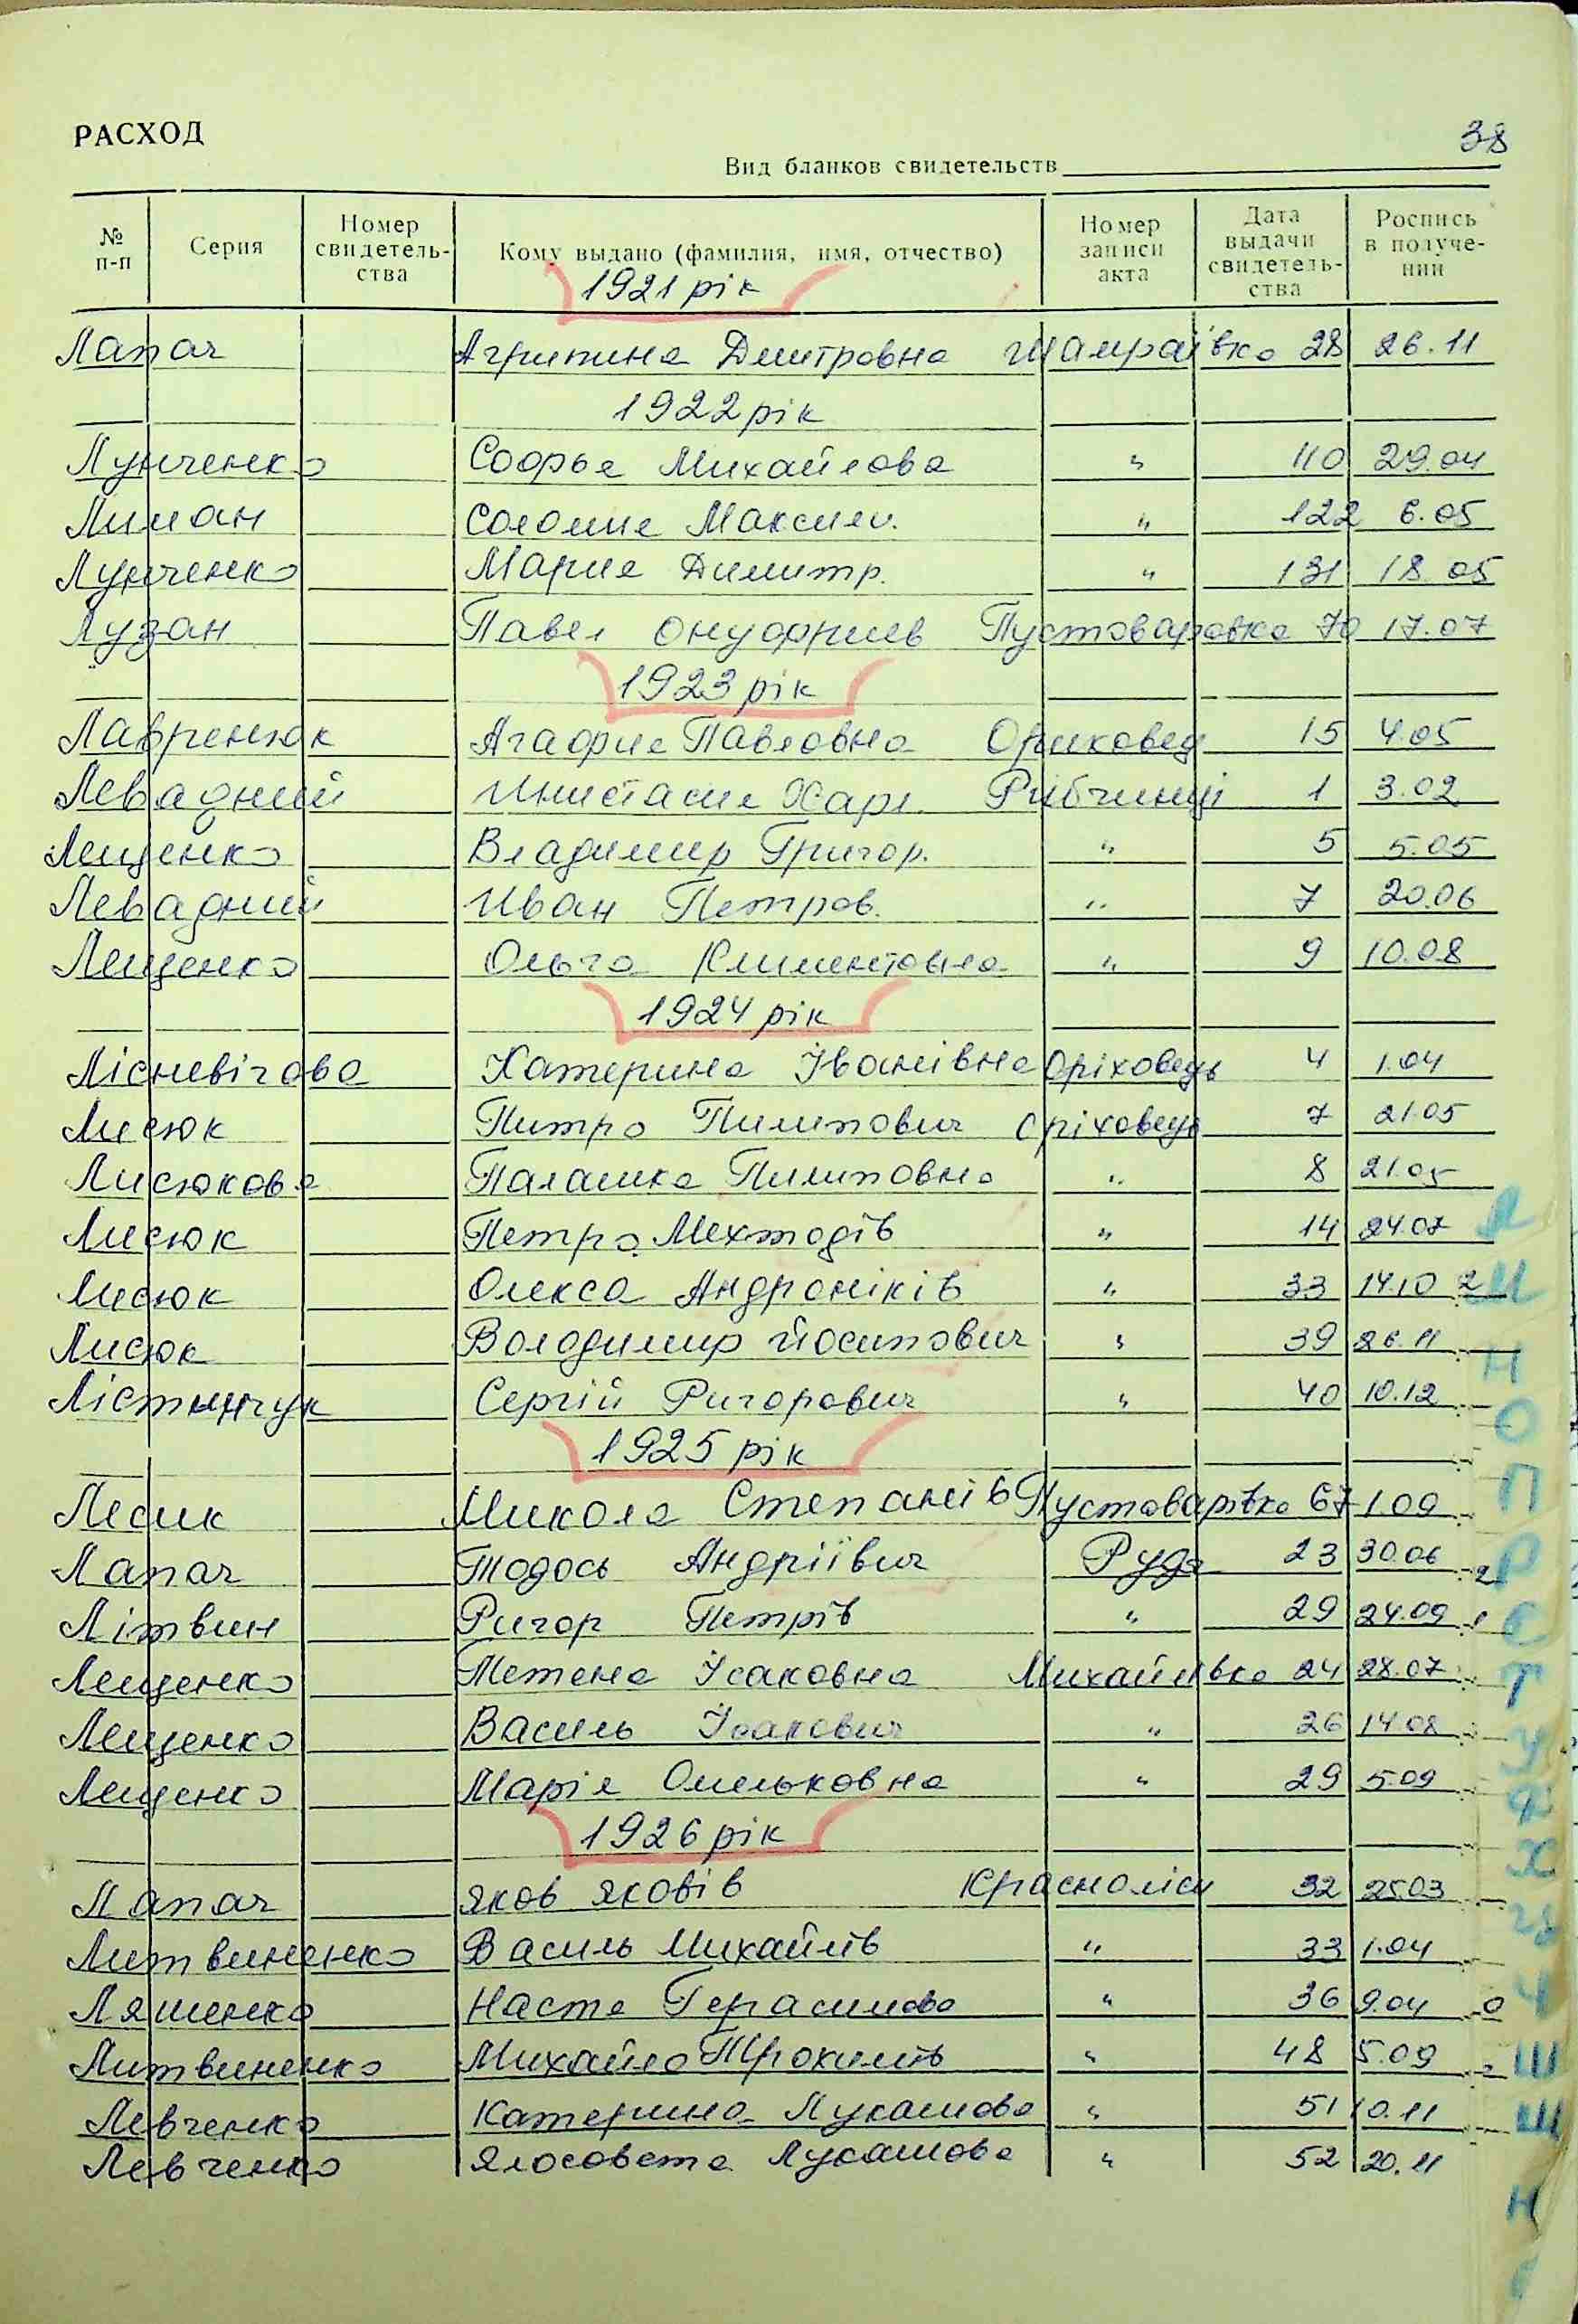 РАСХОД
38
Вид бланков свидетельств
№ п-п Серия Номер свидетель-ства Кому выдано (фамилия, имя, отчество) Номер записи акта Дата выдачи свидетель-ства Роспись в получе-нии
1921 рік
Лапач Агрипина Дмитровна Шамраївка 28 26.11
1922 рік
Лунченко Софья Михайлова " 110 29.04
Лиман Соломие Максим. " 122 6.05
Лунченко Мария Димитр. " 131 18.05
Лузан Павел Онуфриев Пустоваровка 70 17.07
1923 рік
Лавренюк Агафия Павловна Ориховец 15 4.05
Левадний Харл. Рибчинці 1 3.02
Лещенко Владимир Григор. " 5 5.05
Левадний Иван Петров. " 7 20.06
Лещенко Ольга Климентовна " 9 10.08
1924 рік
Лісневігова Катерина Іванівна Оріховець 4 1.04
Лисюк Питро Пилипович Оріховець 7 21.05
Лисюкова Палашка Пилиповна " 8 21.05
Лисюк Петро Мехтодів " 14 24.07
Лисюк Олекса Андроніків " 33 14.10
Лисюк Володимир Йосипович " 39 26.11
Лістинчук Сергій Ригорович " 40 10.12
1925 рік
Лесик Микола Степанів Пустоварівка 67 1.09
Лапач Тодось Андріївич Руда 23 30.06
Літвин Ригор Петрів " 29 24.09
Лещенко Метена Ісаковна Михайлівка 24 28.07
Лещенко Василь Ісакович " 26 14.08
Лещенко Марія Омельковна " 29 5.09
1926 рік
Лапач Яков Яковів Красноліси 32 25.03
Литвиненко Василь Михайлів " 33 1.04
Ляшенко Настя Герасимова " 36 9.04
Литвиненко Михайло Трохимів " 48 5.09
Левченко Катерина Лукашова " 51 10.11
Левченко Ялосовета Лукашова " 52 20.11